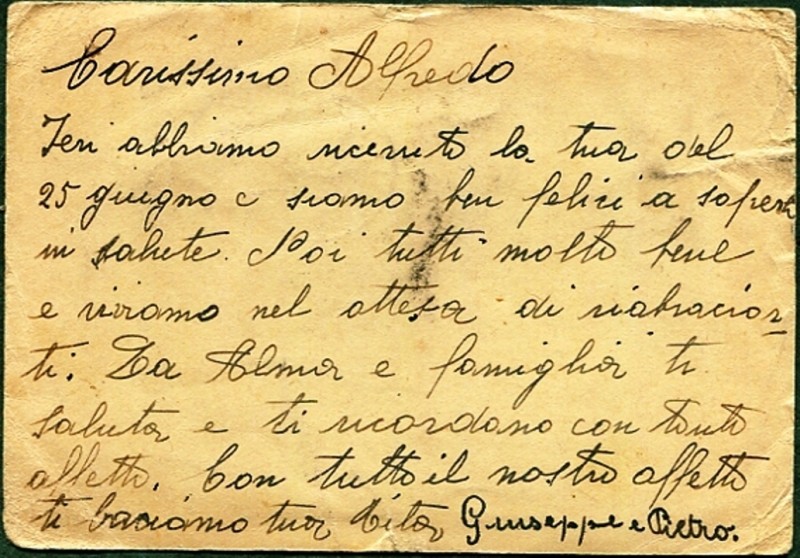 Carissimo Alfredo
Ieri abbiamo ricevuto la tua del
25 giugno e siamo ben felici a saperti
in salute. Noi tutti molto bene
e viviamo nel attesa di riabraciar-
ti. La Alma e famiglia ti
saluta e ti ricordano con tanto
affetto. Con tutto il nostro affetto
ti baciamo tua Rita Giuseppe e Pietro.